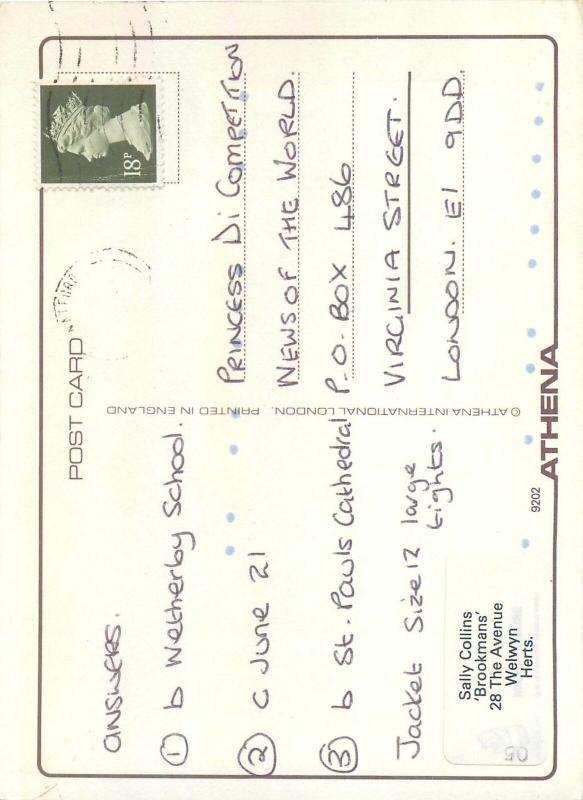 POST CARD
18P
WATFORD
answers.
① b Wetherby School.
② c June 21
③ b St. Pauls Cathedral
Jacket Size 12 large
tights.
Sally Collins
'Brookmans'
28 The Avenue
Welwyn
Herts.
05
© ATHENA INTERNATIONAL LONDON. PRINTED IN ENGLAND
PRINCESS Di COMPETITION
NEWS OF THE WORLD.
P.O. BOX 486
VIRGINIA STREET.
LONDON. E1 9DD.
9202 ATHENA